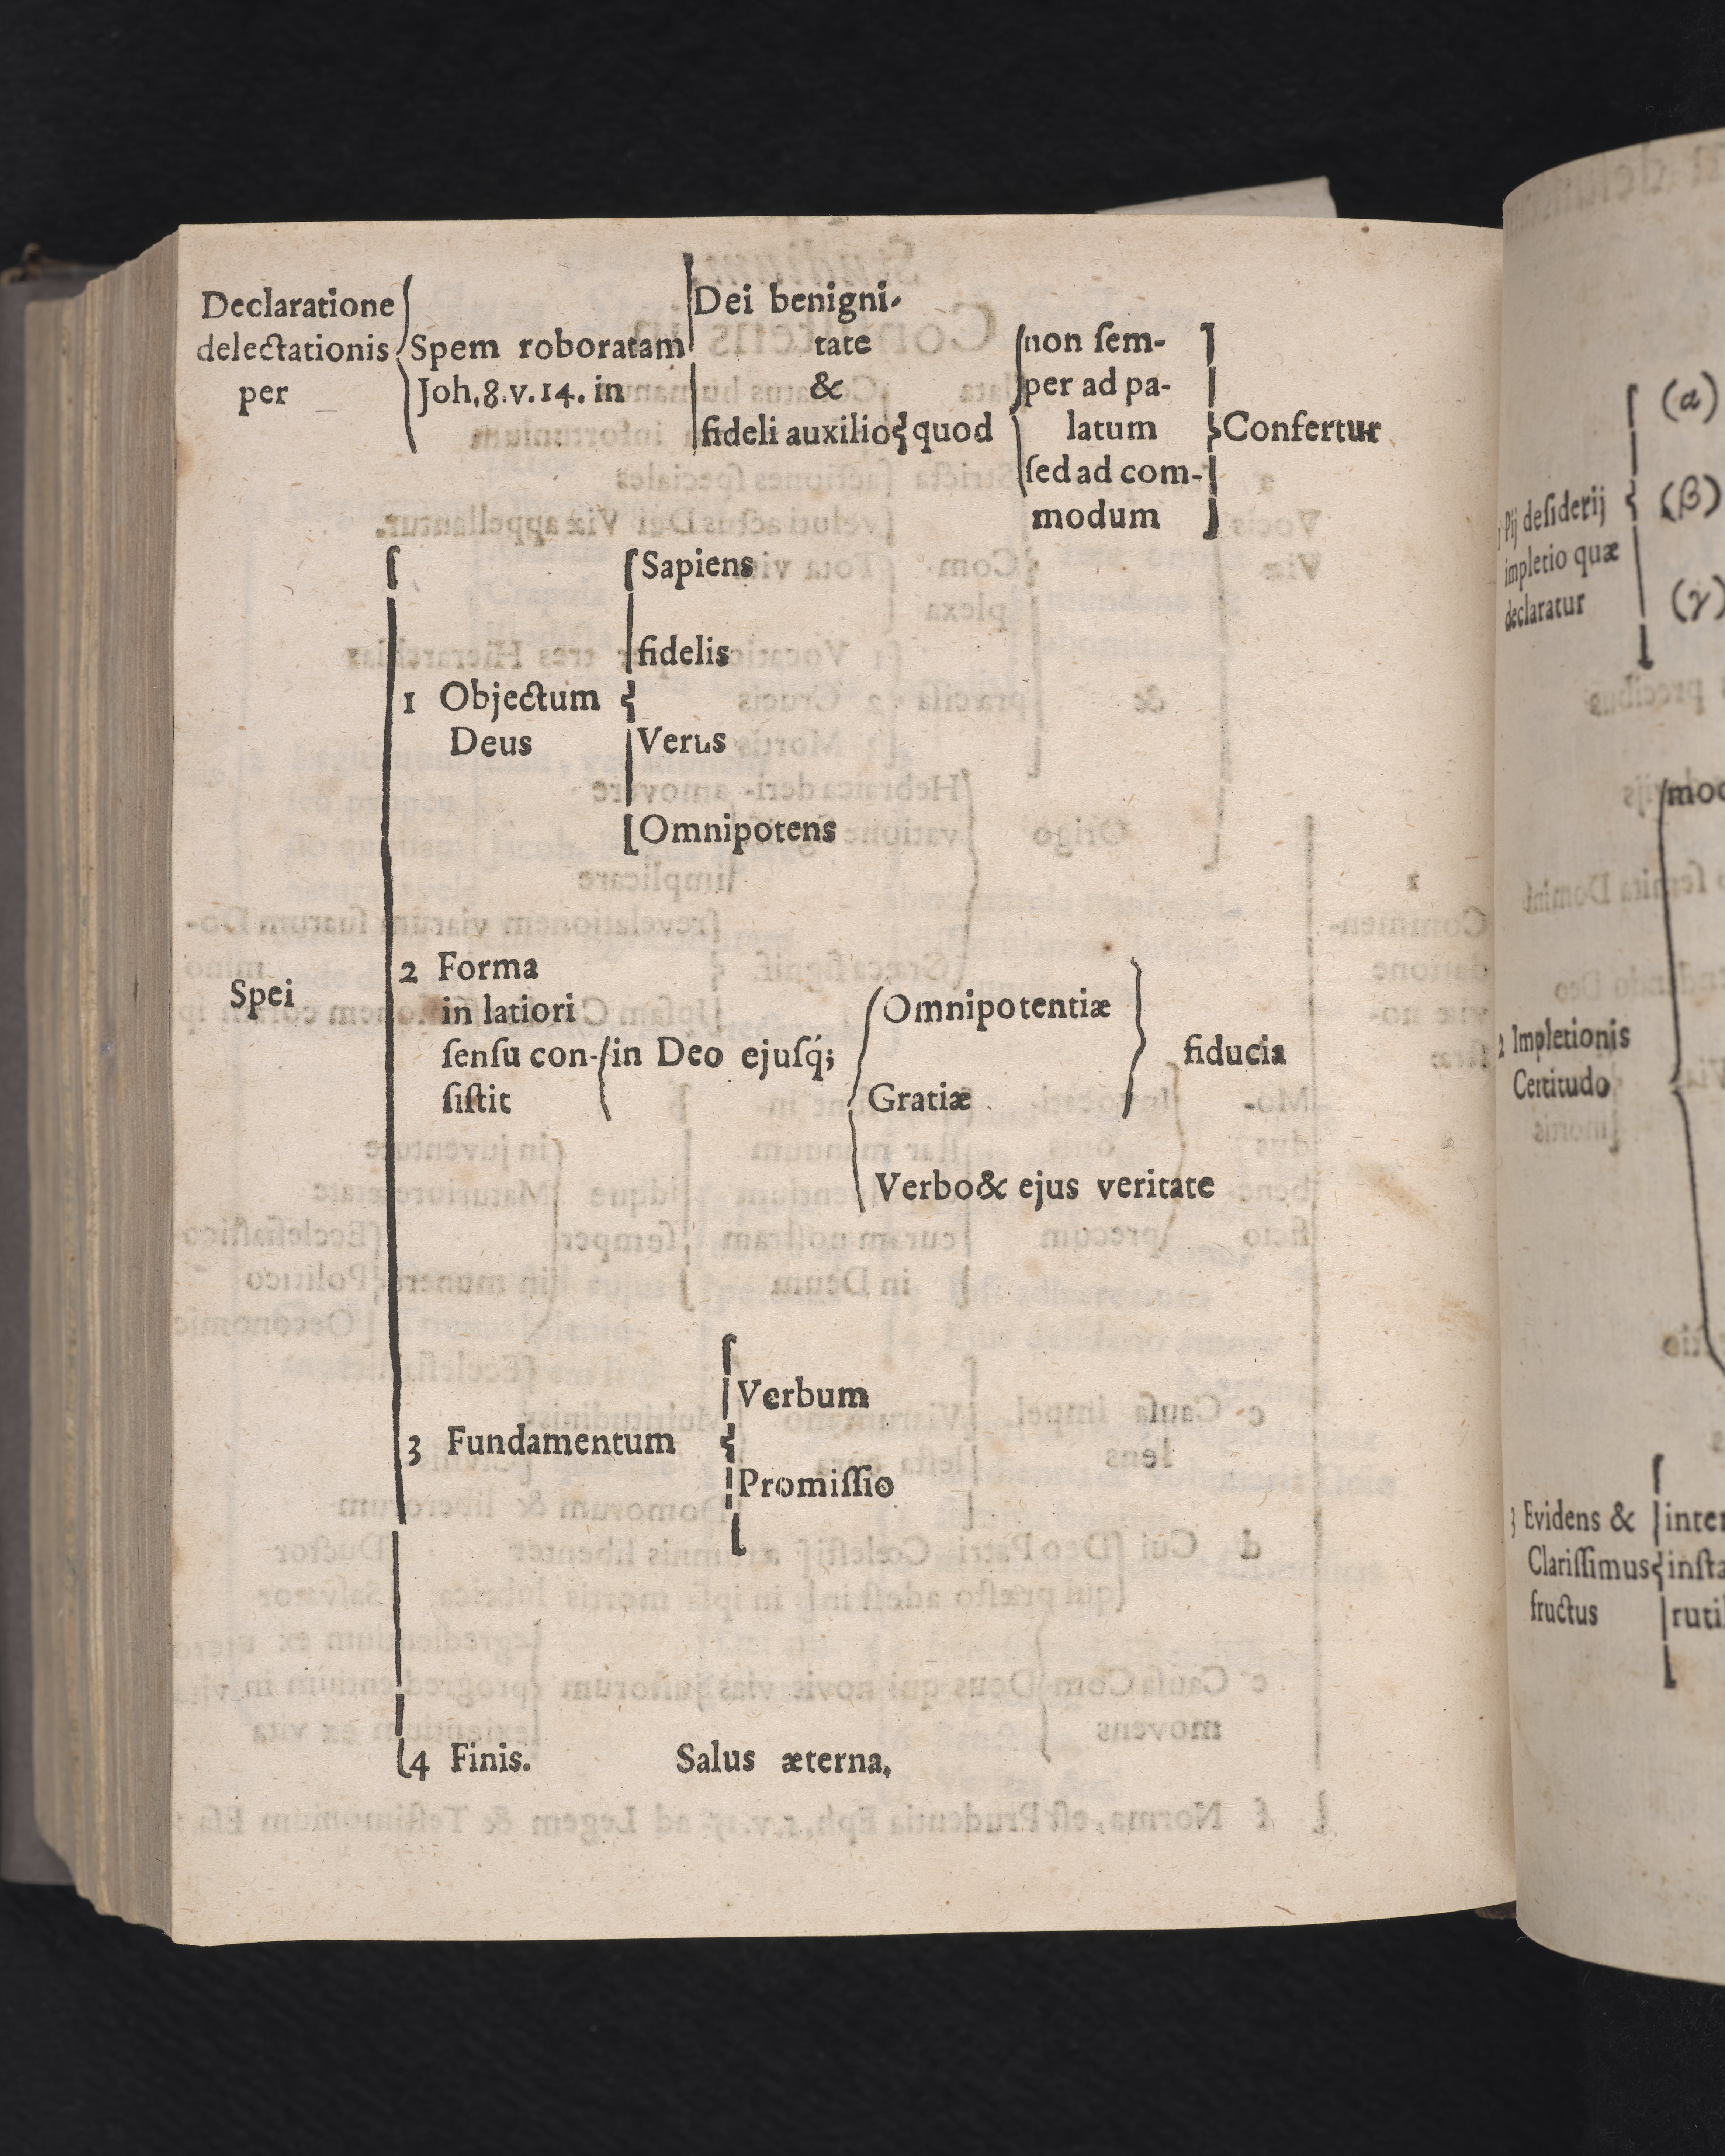 Declaratione
delectationis
per
Spem roboratam
Joh. 8. v. 14. in
Dei benigni-
tate
&
fideli auxilio
quod
non ſem-
per ad pa-
latum
ſed ad com-
modum
Confertur
Spei
1 Objectum
Deus
Sapiens
fidelis
Verus
Omnipotens
2 Forma
in latiori
ſenſu con-
ſiſtit
in Deo ejuſq́;
Omnipotentiæ
Gratiæ
fiducia
Verbo & ejus veritate
3 Fundamentum
Verbum
Promiſſio
4 Finis.
Salus æterna.
Pij deſiderij
impletio quæ
declaratur
(α)
(β)
(γ)
2 Impletionis
Certitudo
3 Evidens &
Clariſſimus
fructus